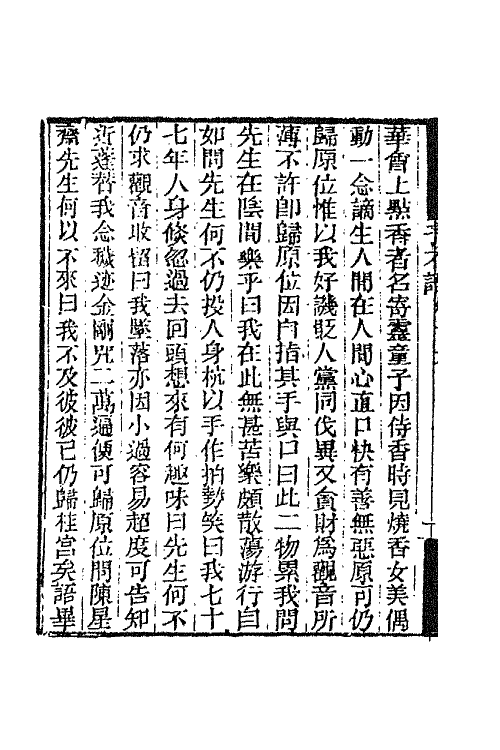 華會上點香者名寄靈童子因侍香時見燒香女美偶
動一念謫生人間在人間心直口快有善無惡原可仍
歸原位惟以我好譏貶人黨同伐異又貪財爲觀音所
薄不許卽歸原位因自指其手與口曰此二物累我問
先生在陰間樂乎曰我在此無甚苦樂頗散蕩游行自
如問先生何不仍投人身杭以手作拍勢笑曰我七十
七年人身倏忽過去回頭想來有何趣味曰先生何不
仍求觀音收留曰我墜落亦因小過容易超度可告知
近薳替我念穢迹金剛咒二萬遍便可歸原位問陳星
齋先生何以不來曰我不及彼彼已仍歸桂宮矣語畢